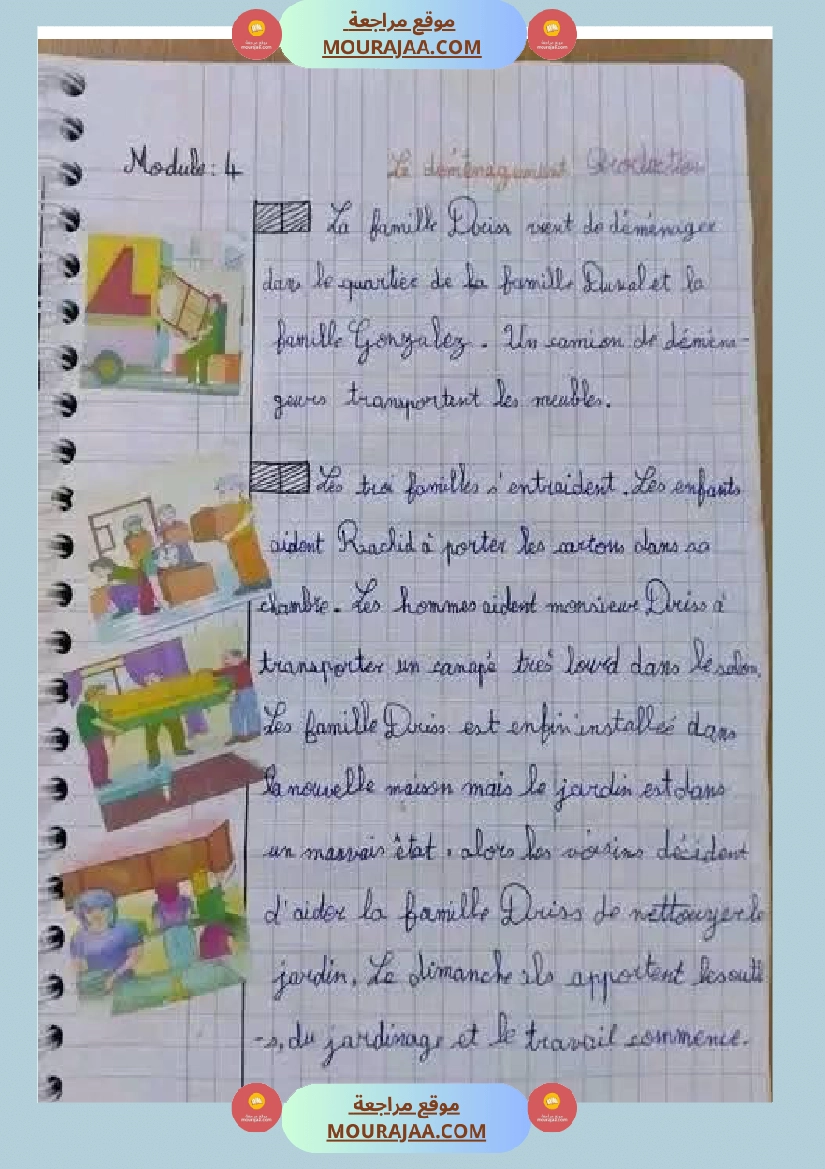 موقع مراجعة
MOURAJAA.COM
Module : 4
Le déménagement Production
La famille Driss vient de déménager
dans le quartier de la famille Duval et la
famille Gonzalez. Un camion de démén-
geurs transportent les meubles.
Les troi familles s'entraident. Les enfants
aident Rachid à porter les cartons dans sa
chambre. Les hommes aident monsieur Driss à
transporter un canapé très lourd dans le salon.
Les famille Driss est enfin installeé dans
la nouvelle maison mais le jardin est dans
un mauvais êtat. alors les voisins décident
d'aider la famille Driss de nettouyer le
jardin. Le dimanche ils apportent les outil
-s, du jardinage et le travail commence.
موقع مراجعة
MOURAJAA.COM